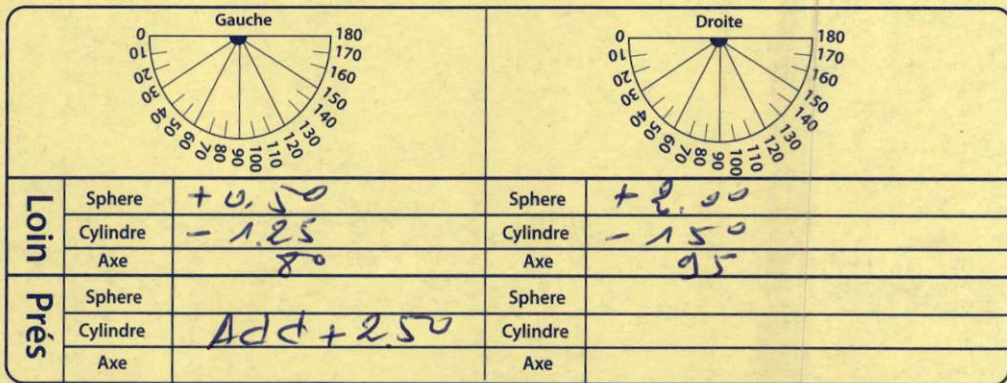 Gauche Droite
0 10 20 30 40 50 60 70 80 90 100 110 120 130 140 150 160 170 180
0 10 20 30 40 50 60 70 80 90 100 110 120 130 140 150 160 170 180
Loin
Sphere +0.50 Sphere +2.00
Cylindre -1.25 Cylindre -150
Axe 80 Axe 95
Prés
Sphere Sphere
Cylindre Add +250 Cylindre
Axe Axe